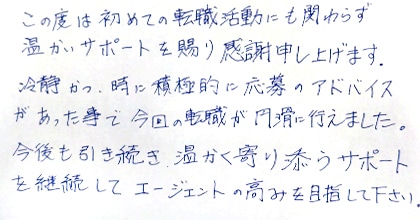 この度は初めての転職活動にも関わらず
温かいサポートを賜り感謝申し上げます.
冷静かつ、時に積極的に応募のアドバイス
があった事で今回の転職が円滑に行えました。
今後も引き続き温かく寄り添うサポート
を継続してエージェントの高みを目指して下さい。